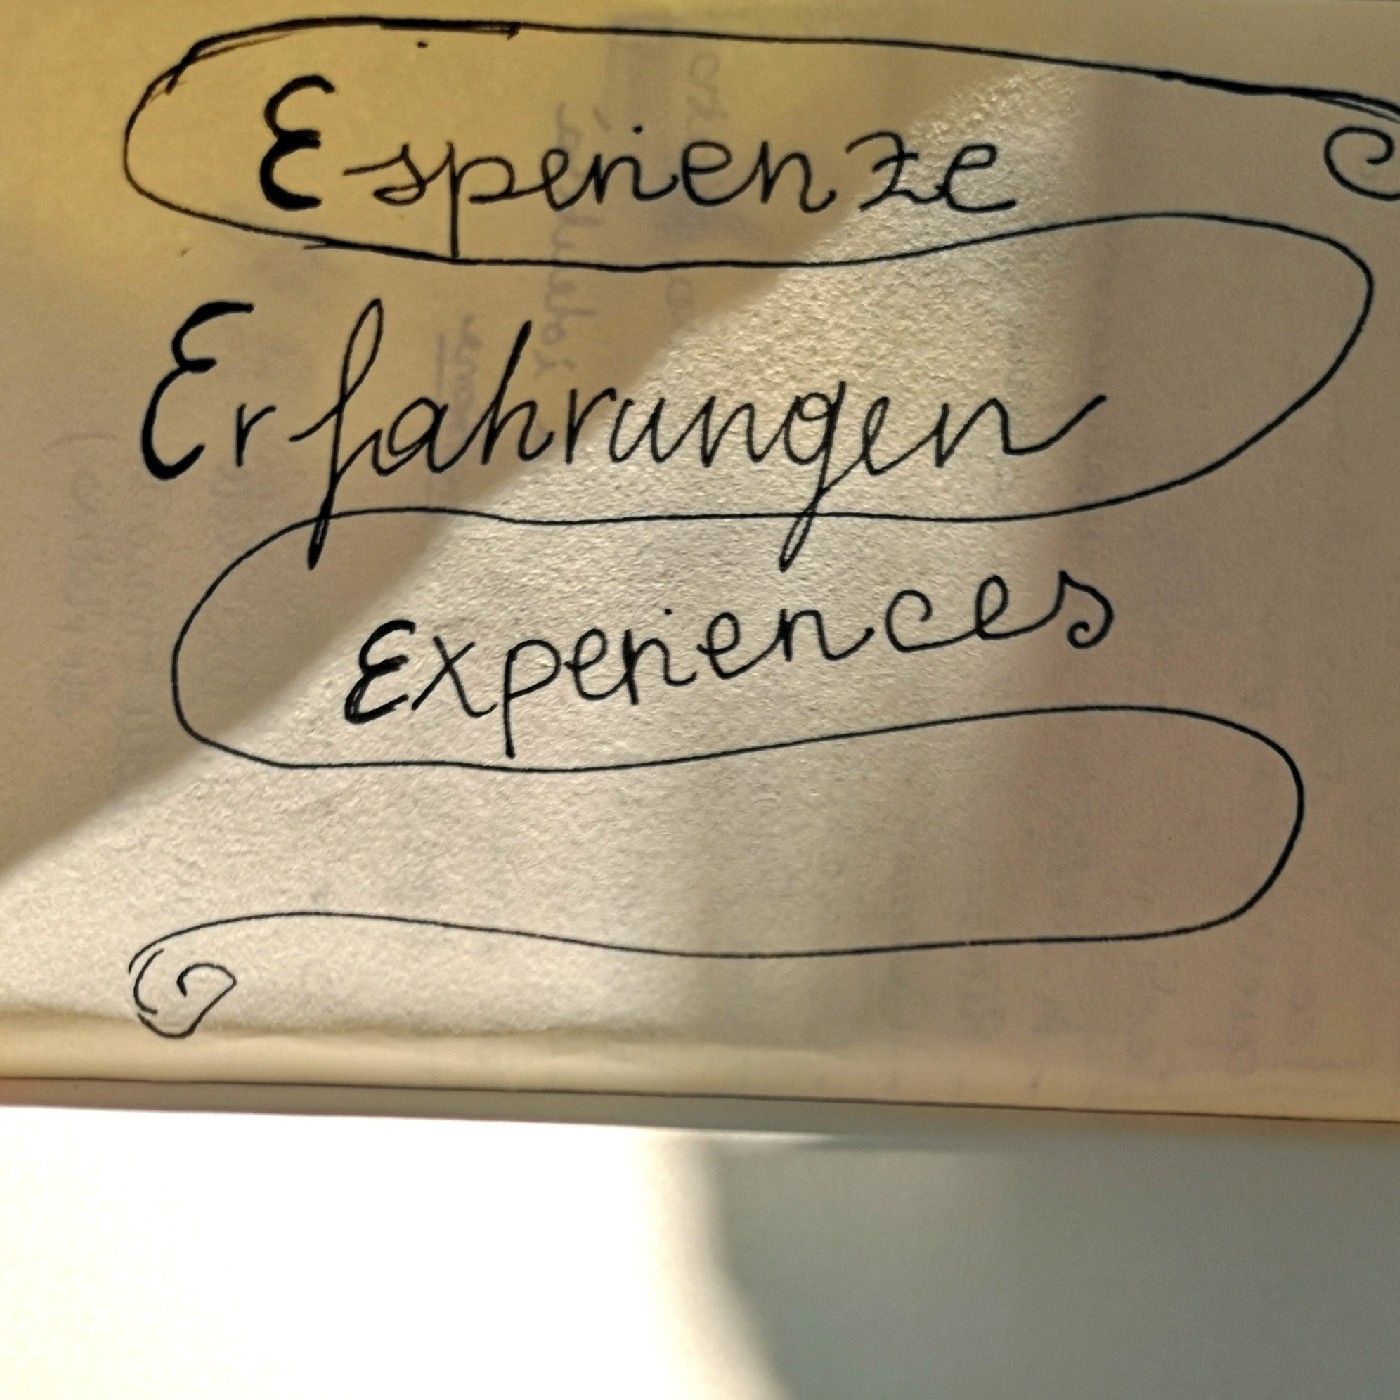 Esperienze
Erfahrungen
Experiences